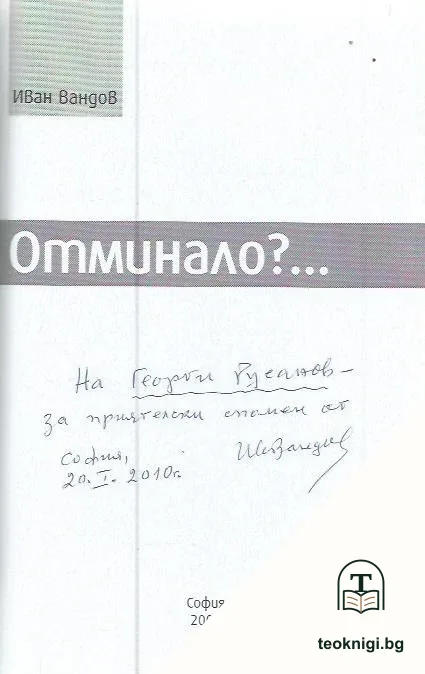 Иван Вандов
Отминало?...
На Георги Русанов –
за приятелски спомен от
София,
20. I. 2010г.
София
200
T
teoknigi.bg